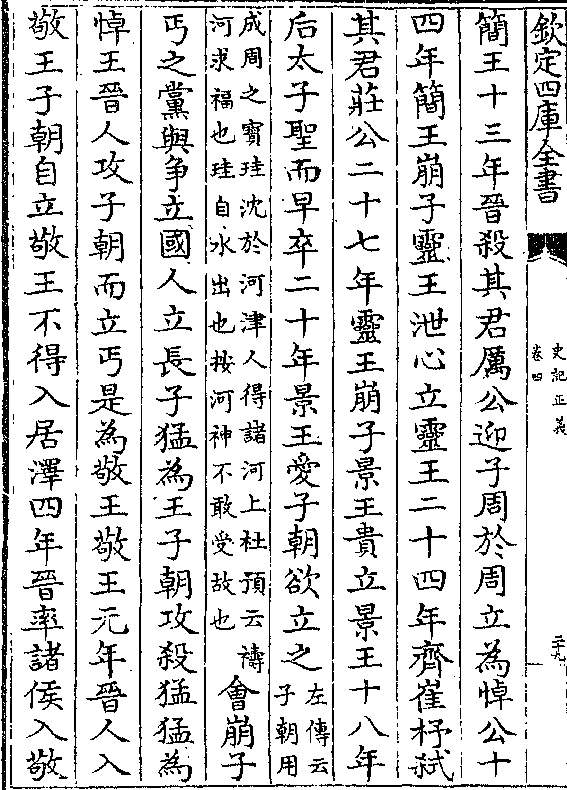 欽定四庫全書
史記正義
卷四
二十九
簡王十三年晉殺其君厲公迎子周於周立為悼公十
四年簡王崩子靈王泄心立靈王二十四年齊崔杼弑
其君莊公二十七年靈王崩子景王貴立景王十八年
后太子聖而早卒二十年景王愛子朝欲立之
左傳云
子朝用
成周之寶珪沈於河津人得諸河上杜預云禱
河求福也珪自水出也按河神不敢受故也
會崩子
丐之黨與争立國人立長子猛為王子朝攻殺猛猛為
悼王晉人攻子朝而立丐是為敬王敬王元年晉人入
敬王子朝自立敬王不得入居澤四年晉率諸侯入敬